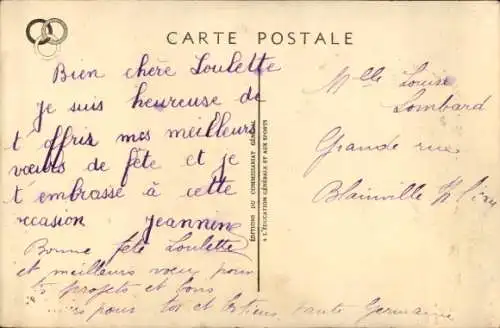 CARTE POSTALE
Bien chère Loulette
je suis heureuse de
t'offrir mes meilleurs
vœurs de fête et je
t'embrasse à cette
occasion Jeannine
Bonne fête Loulette
et meilleurs vœux pour
tes projets et bons
pour toi et tante Germaine
EDITIONS DU COMMISSARIAT GÉNÉRAL
A L'EDUCATION GÉNÉRALE ET AUX SPORTS
Mlle Louise
Lombard
Grande rue
Blainville